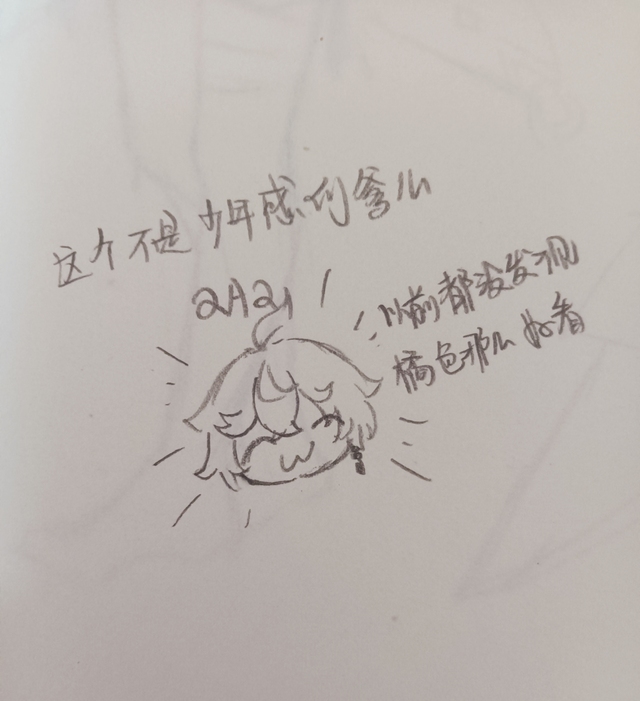 这个不是少年感何爹么
2A21
以前都没发现
橘色那么好看